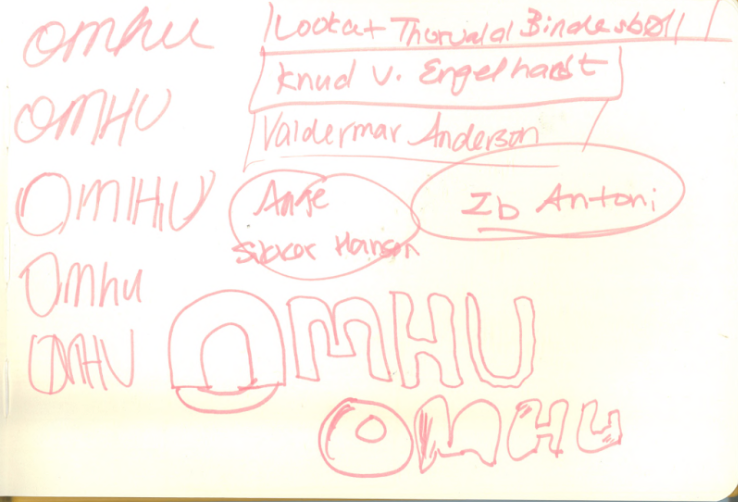 omhu
Look at Thorvald Bindesbøll
Knud V. Engelhardt
OMHU
Valdermar Anderson
OMHU
Ib Antoni
Hansen
Omhu
OMHU
OMHU
OMHU